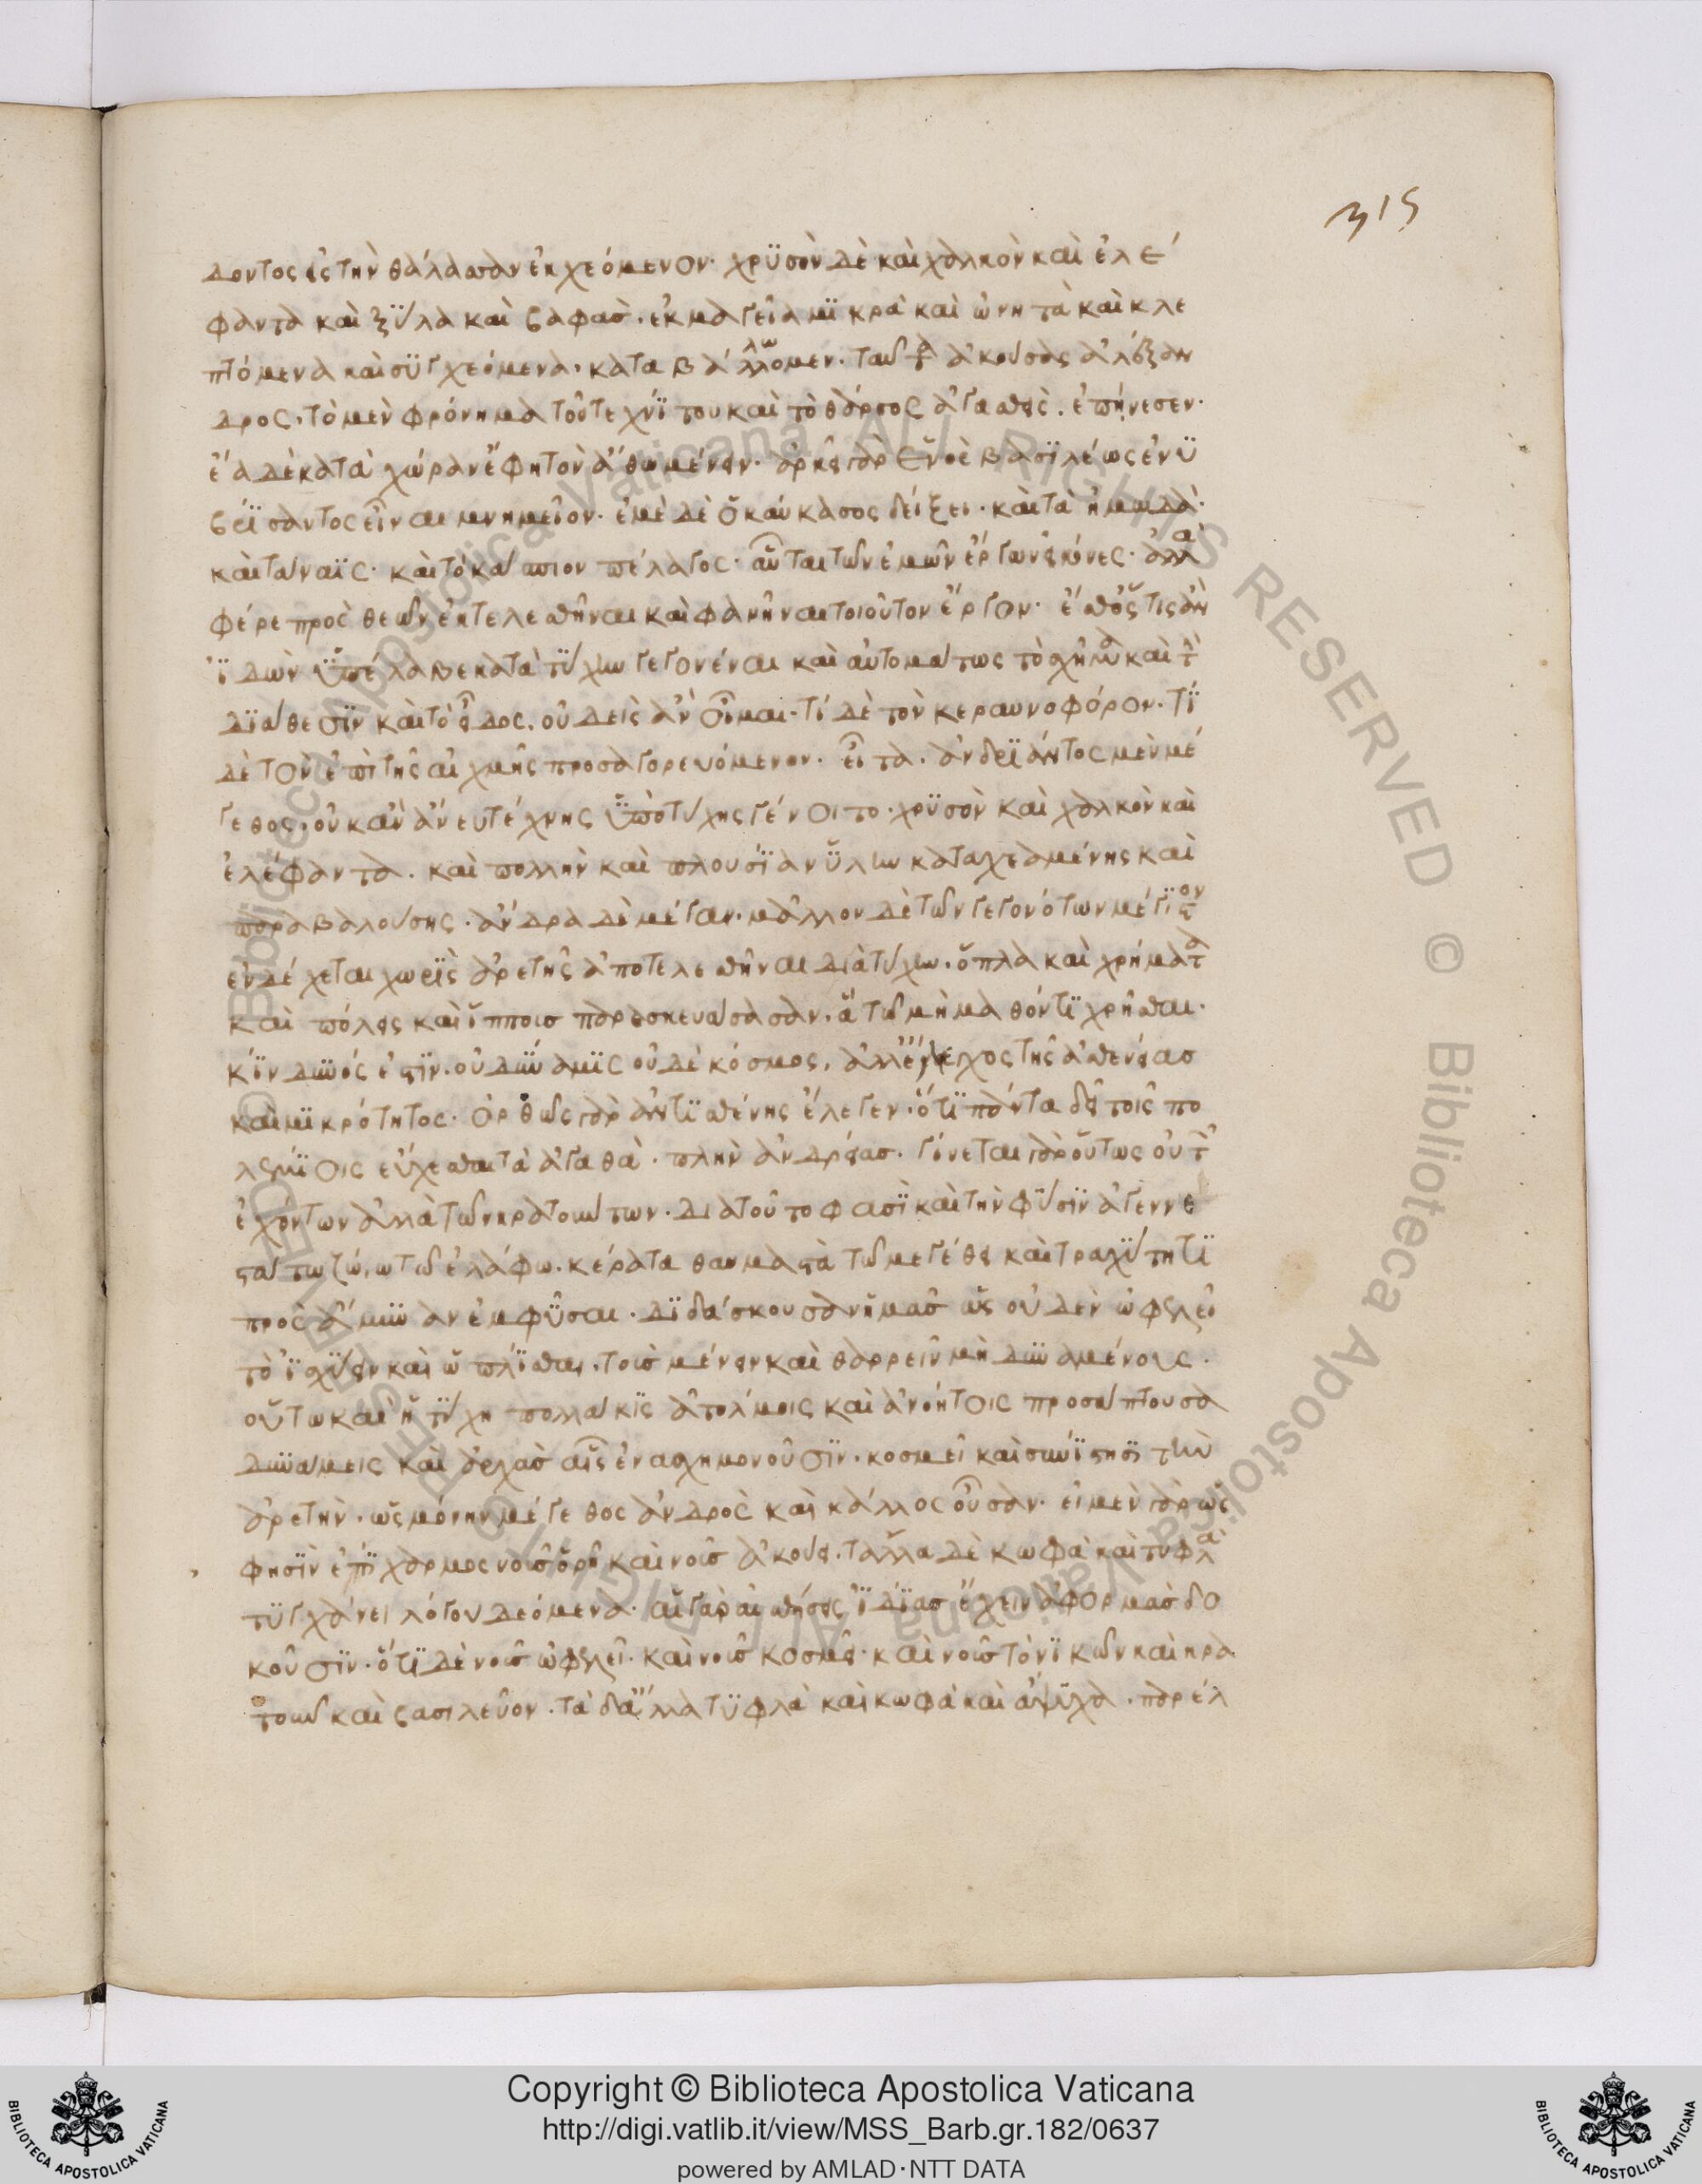 315
δοντος εἰς τὴν θάλασσαν ἐκχεόμενον· χρϋσὸν δὲ καὶ χαλκὸν καὶ ἐλέ
φαντα καὶ ξύλα καὶ βαφὰσ. ἐκμαγεῖα μϊκρὰ καὶ ὠνητὰ καὶ κλε
πτόμενα καὶ συγχεόμενα. καταβάλλωμεν. ταῦτα ἀκούσας ἀλέξαν
δρος, τὸ μὲν φρόνημα τοῦ τεχνΐτου καὶ τὸ θάρσος ἀγασθεὶς. ἐπήνεσεν·
ἔα δὲ κατὰ χώραν ἔφη τὸν ἄθω μένειν· ἀρκεῖ γὰρ ἑνὸς βασϊλέως ἐνϋ
βρΐσαντος εἶναι μνημεῖον· ἐμὲ δὲ ὁ καύκασος δείξει. καὶ τὰ ἠμωδὰ·
καὶ τάναϊς· καὶ τὸ κάσπιον πέλαγος· αὗται τῶν ἐμῶν ἔργων εἰκόνες· ἀλλὰ
φέρε πρὸς θεῶν ἐκτελεσθῆναι καὶ φανῆναι τοιοῦτον ἔργον· ἔσθ' ὅστις ἂν
ἰδὼν ὑπέλαβε κατὰ τύχην γεγονέναι καὶ αὐτομάτως τὸ σχῆμα καὶ τὴν
διάθεσϊν καὶ τὸ εἶδος. οὐδεὶς ἂν οἶμαι. τί δὲ τὸν κεραυνοφόρον. τί
δὲ τὸν ἐπὶ τῆς αἰχμῆς προσαγορευόμενον. εἶτα. ἀνδριάντος μὲν μέ
γεθος. οὐκ ἂν ἄνευ τέχνης ὑπὸ τύχης γένοιτο. χρϋσὸν καὶ χαλκὸν καὶ
ἐλέφαντα. καὶ πολλὴν καὶ πλουσΐαν ὕλην καταχεαμένης καὶ
παραβαλούσης. ἄνδρα δὲ μέγαν. μᾶλλον δὲ τῶν γεγονότων μέγιστον
ἐνδέχεται χωρὶς ἀρετῆς ἀποτελεσθῆναι διὰ τύχην. ὅπλα καὶ χρήματα
καὶ πόλεις καὶ ἵππουσ παρασκευάσασαν. ἃ τῶ μὴ μαθόντϊ χρῆσθαι.
κΐνδυνός ἐστϊν. οὐ δύναμϊς οὐδὲ κόσμος, ἀλλ' ἔλεγχος τῆς ἀσθενείασ
καὶ μϊκρότητος. ὀρθῶς γὰρ ἀντϊσθένης ἔλεγεν. ὅτϊ πάντα δεῖ τοῖς πο
λεμΐοις εὔχεσθαι τὰ ἀγαθὰ. πλὴν ἀνδρείασ. γίνεται γὰρ οὕτως οὐ τῶν
ἐχόντων ἀλλὰ τῶν κρατούντων. διὰ τοῦτο φασὶ καὶ τὴν φύσϊν ἀγεννε
στάτω ζώω τῶ ἐλάφω. κέρατα θαυμαστὰ τῶ μεγέθει καὶ τραχύτητϊ
πρὸς ἄμυναν ἐμφῦσαι. δϊδάσκουσαν ἡμᾶσ ὡς οὐδὲν ὠφελεῖ
τὸ ἰσχύειν καὶ ὡπλΐσθαι. τοῖσ μένειν καὶ θαρρεῖν μὴ δυναμένοις.
οὕτω καὶ ἡ τύχη πολλάκϊς ἀτόλμοις καὶ ἀνοήτοις προσάπτουσα
δυνάμεις καὶ ἀρχὰσ αἷς ἐνασχημονοῦσϊν. κοσμεῖ καὶ συνΐστησϊ τὴν
ἀρετὴν. ὡς μόνην μέγεθος ἀνδρὸς καὶ κάλλος οὖσαν· εἰ μὲν γὰρ ὥς
φησϊν ἐπΐχαρμος νοῦσ ὁρῆ καὶ νοῦσ ἀκούει. τἄλλα δὲ κωφὰ καὶ τυφλὰ
τϋγχάνει λόγου δεόμενα. αἱ γὰρ αἰσθήσεις ἰδΐασ ἔχειν ἀφορμὰσ δο
κοῦσϊν. ὅτϊ δὲ νοῦσ ὠφελεῖ. καὶ νοῦσ κοσμεῖ. καὶ νοῦσ τὸ νϊκῶν καὶ κρα
τοῦν καὶ βασιλεῦον. τὰ δ' ἄλλα τϋφλὰ καὶ κωφὰ καὶ ἄψυχα. παρέλ
Copyright © Biblioteca Apostolica Vaticana
http://digi.vatlib.it/view/MSS_Barb.gr.182/0637
powered by AMLAD·NTT DATA
BIBLIOTECA APOSTOLICA VATICANA
BIBLIOTECA APOSTOLICA VATICANA